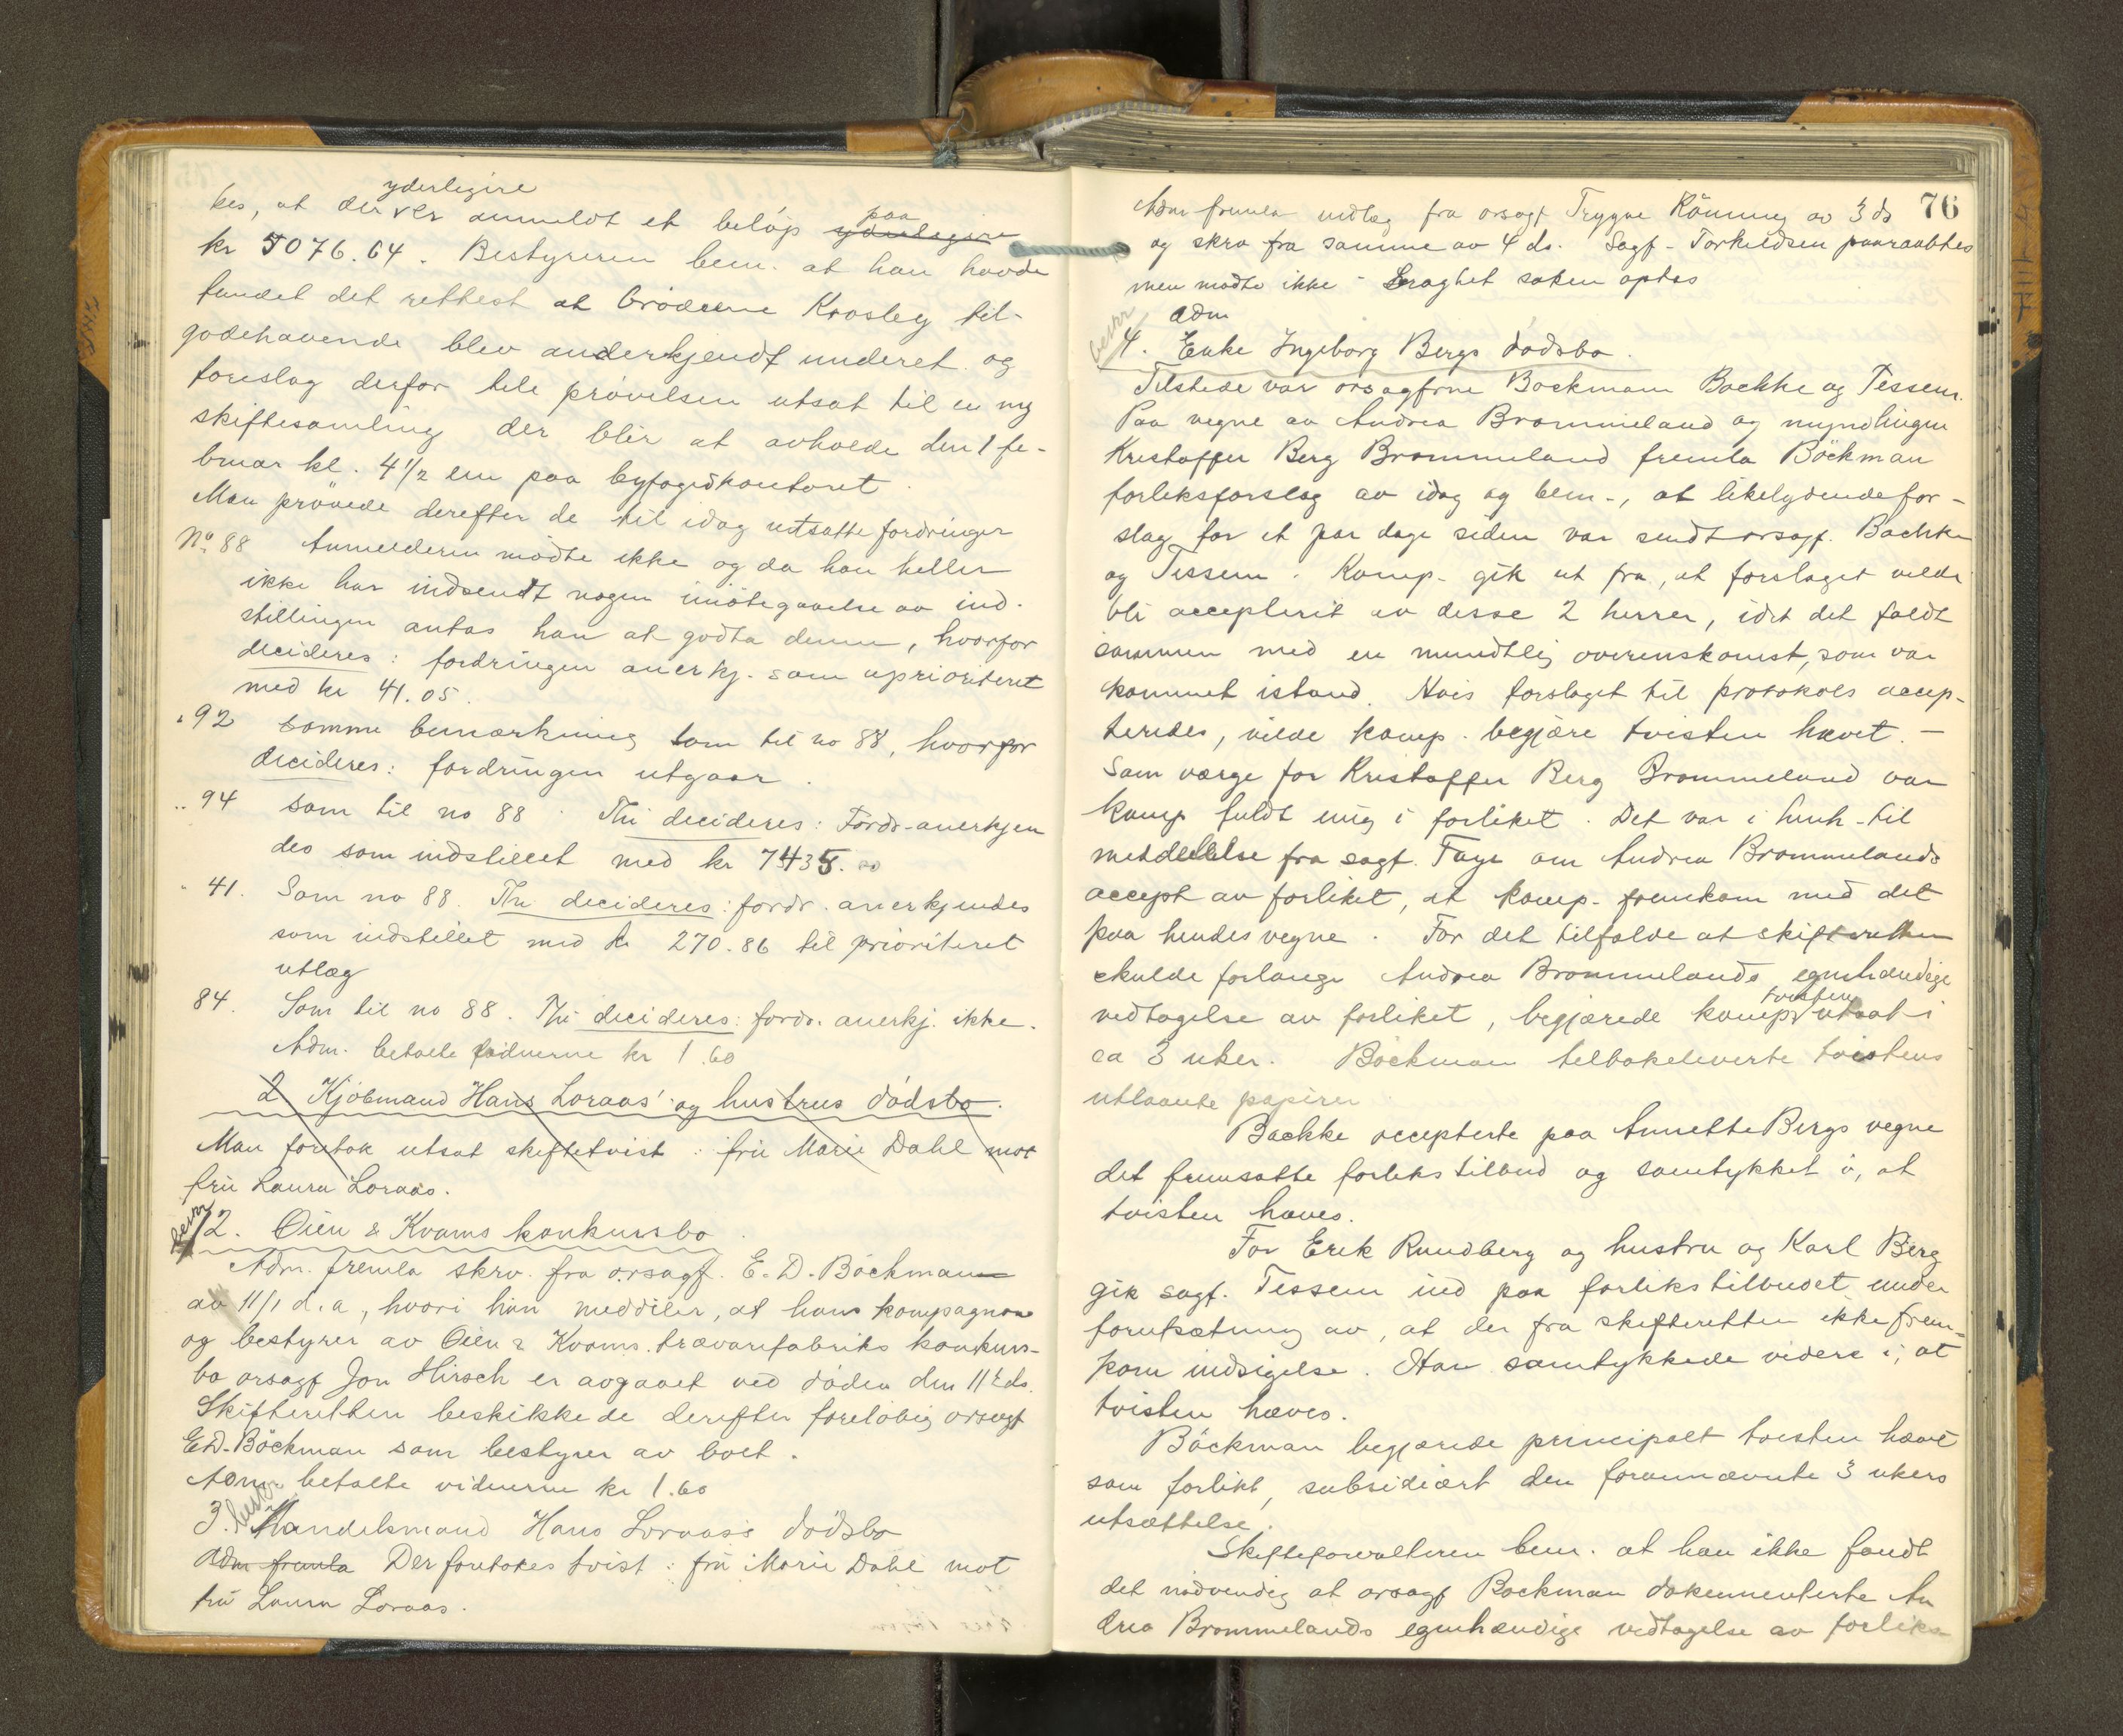 yderligere
kes, at der er anmeldt et beløp ydeligere paa
kr 5076.64. Bestyreren bem. at han havde
fundet det rettest at brødrene Krosby til-
godehavende blev anderkjendt underet og
foreslog derfor hele prøvelsen utsat til en ny
skiftesamling der blir at avholde den 1 fe-
bruar kl. 4 1/2 em paa byfogedkontoret.
Man prøvede derefter de til idag utsatte fordringer
No. 88 Anmelderen mødte ikke og da han heller
ikke har indsendt nogen imøtegaaelse av ind-
stillingen antas han at godta denne, hvorfor
decideres: fordringen anerkj. som uprioriteret
med kr 41.05.
" 92 samme bemerkning som til no 88, hvorfor
decideres: fordringen utgaar.
" 94 som til no 88. Thi decideres: Fordr. anerkjen
des som indstillet med kr 7435.00
" 41. Som no 88. Thi decideres: fordr. anerkjendes
som indstillet med kr 270.86 til prioriteret
utlæg
84. Som til no 88. Thi decideres: fordr. anerkj. ikke.
Adm. betalte vidnerne kr 1.60
2 Kjøbmand Hans Loraas' og hustrus dødsbo.
Man foretok utsat skiftetvist: fru Marie Dahl mot
fru Laura Loraas.
2. Øien & Kvams konkursbo.
Adm. fremla skrv. fra orsagf. E. D. Böckman
av 11/1 d.a, hvori han meddeler, at hans kompagnon
og bestyrer av Øien & Kvams trævarefabriks konkurs-
bo orsagf Jon Hirsch er avgaaet ved døden den 11te ds.
Skifteretten beskikkede derefter foreløbig orsagf
E.D. Böckman som bestyrer av boet.
Adm betalte vidnerne kr 1.60
3. Handelsmand Hans Loraas's dødsbo
Adm fremla Der foretokes tvist: fru Marie Dahl mot
fru Laura Loraas.
76
Adm fremla indlæg fra orsagf Trygve Rönning av 3 ds
og skrv fra samme av 4 ds. Sagf. Torkildsen paaraabtes
men mødte ikke saken optas
Adm
4. Enke Ingeborg Bergs dødsbo.
Tilstede var orsagfrne Bockman Bachke og Tessem.
Paa vegne av Andrea Brommeland og myndlingen
Kristoffer Berg Brommeland fremla Böckman
forliksforslag av idag og bem., at likelydende for-
slag for et par dage siden var sendt orsagf. Bachke
og Tessem. Komp. gik ut fra, at forslaget vilde
bli accepterit av desse 2 herrer, idet det faldt
sammen med en mundtlig overenskomst, som var
kommet istand. Hvis forslaget til protokols accep-
teredes, vilde komp. begjære tvisten hævet. —
Som værge for Kristoffer Berg Brommeland var
komp fuldt enig i forliket. Det var i henh. til
meddelelse fra sagf. Faye om Andrea Brommelands
accept av forliket, at komp. fremkom med det
paa hendes vegne. For det tilfælde at skifteretten
skulde forlange Andrea Brommelands egenhændige
vedtagelse av forliket, begjærede komp tvisten utsat i
ca 3 uker. Böckman tilbakeleverte tvistens
utlaante papirer
Bachke accepterte paa Annette Bergs vegne
det fremsatte forlikstilbud og samtykket i, at
tvisten hæves.
For Erik Rundberg og hustru og Karl Berg
gik sagf. Tessem ind paa forlikstilbudet under
forutsætning av, at der fra skifteretten ikke frem-
kom indsigelse. Han samtykkede videre i, at
tvisten hæves.
Böckman begjærede principalt tvisten hævet
som forlikt, subsidiært den forannævnte 3 ukers
utsættelse.
Skifteforvalteren bem. at han ikke fandt
det nødvendig at orsagf Bockman dokumenterte An
drea Brommelands egenhændige vedtagelse av forliks